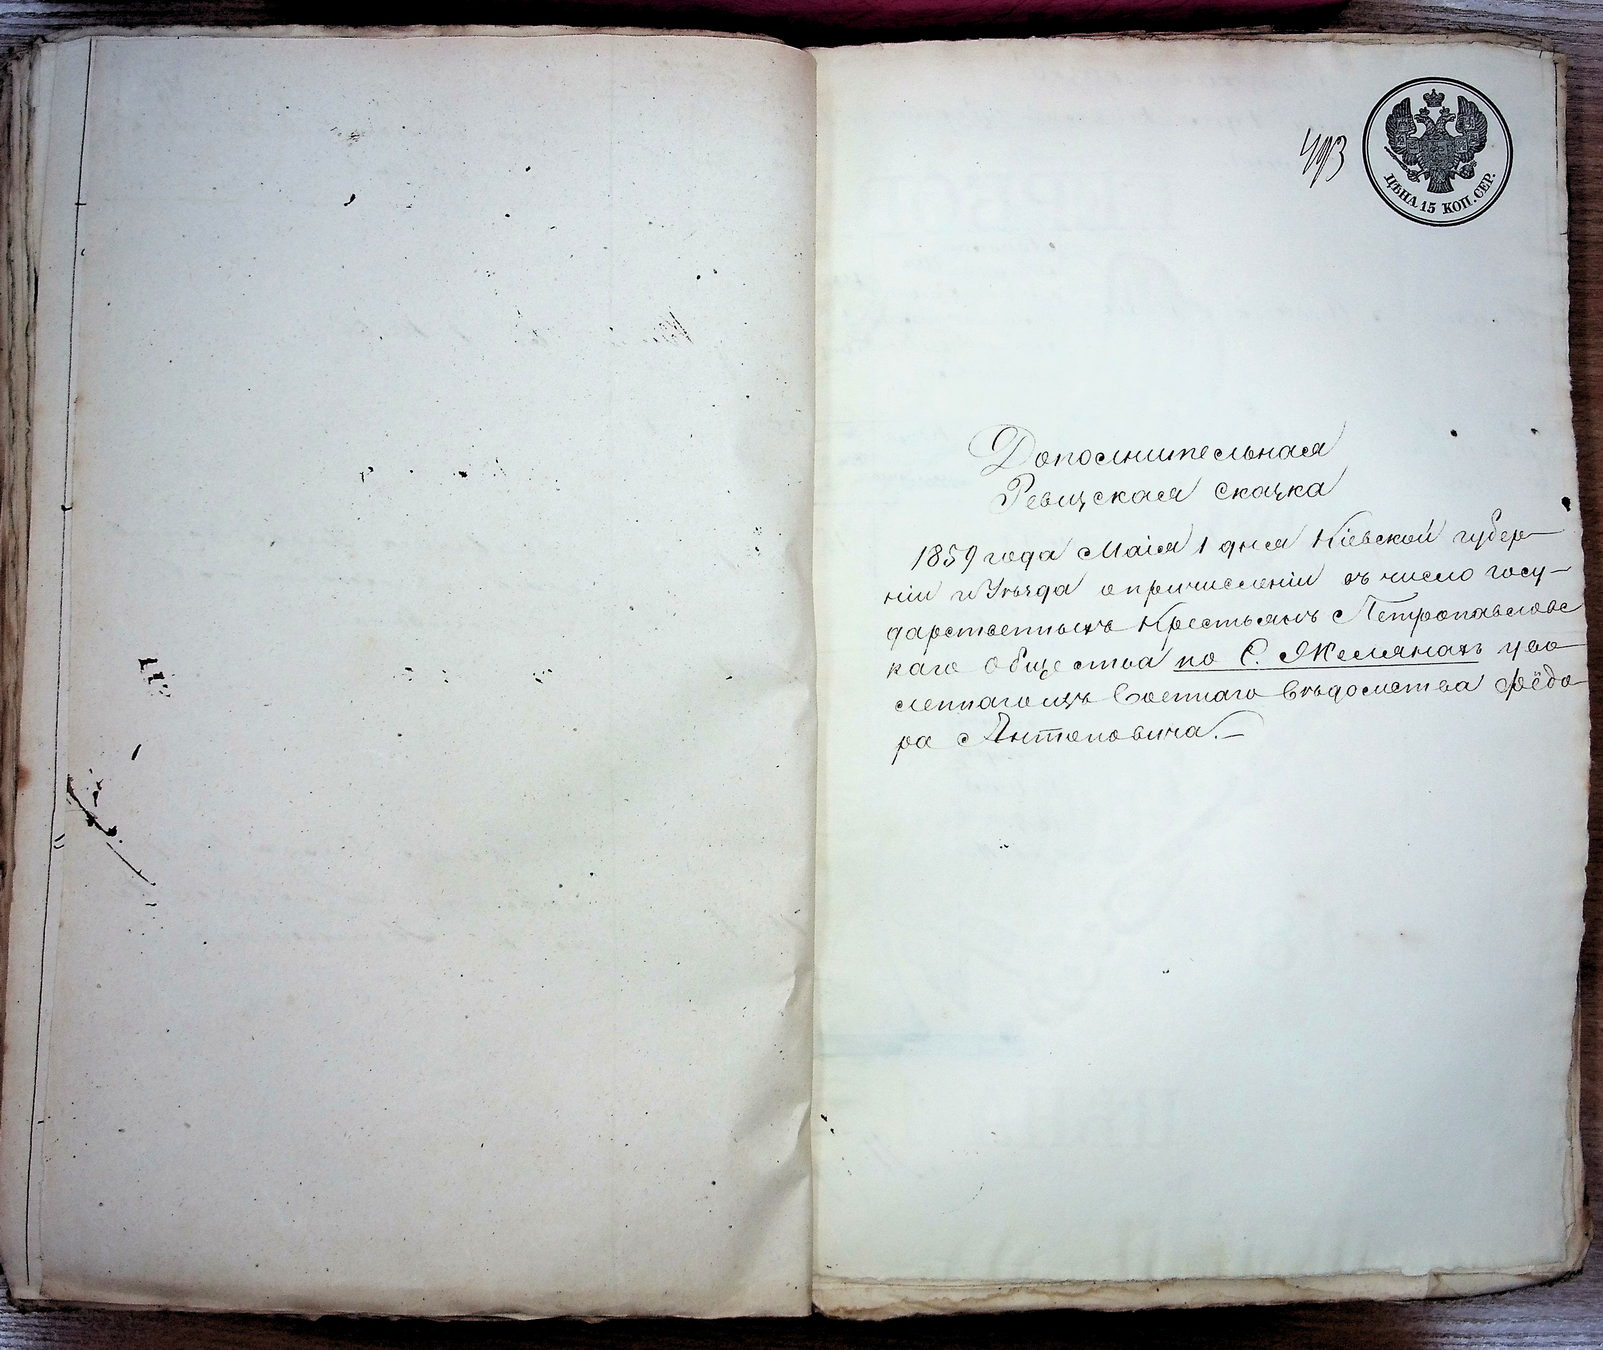 ЦѢНА 15 КОП. СЕР.
Дополнительная
Ревизская сказка
1859 года Маія 1 дня Кіевской губер-
ніи и Уѣзда о причисленіи въ число госу-
дарственныхъ Крестьянъ Петропавловс
каго Общества по С. Желянахъ уво
леннаго изъ Военнаго вѣдомства Фёдо
ра Антоновича.-